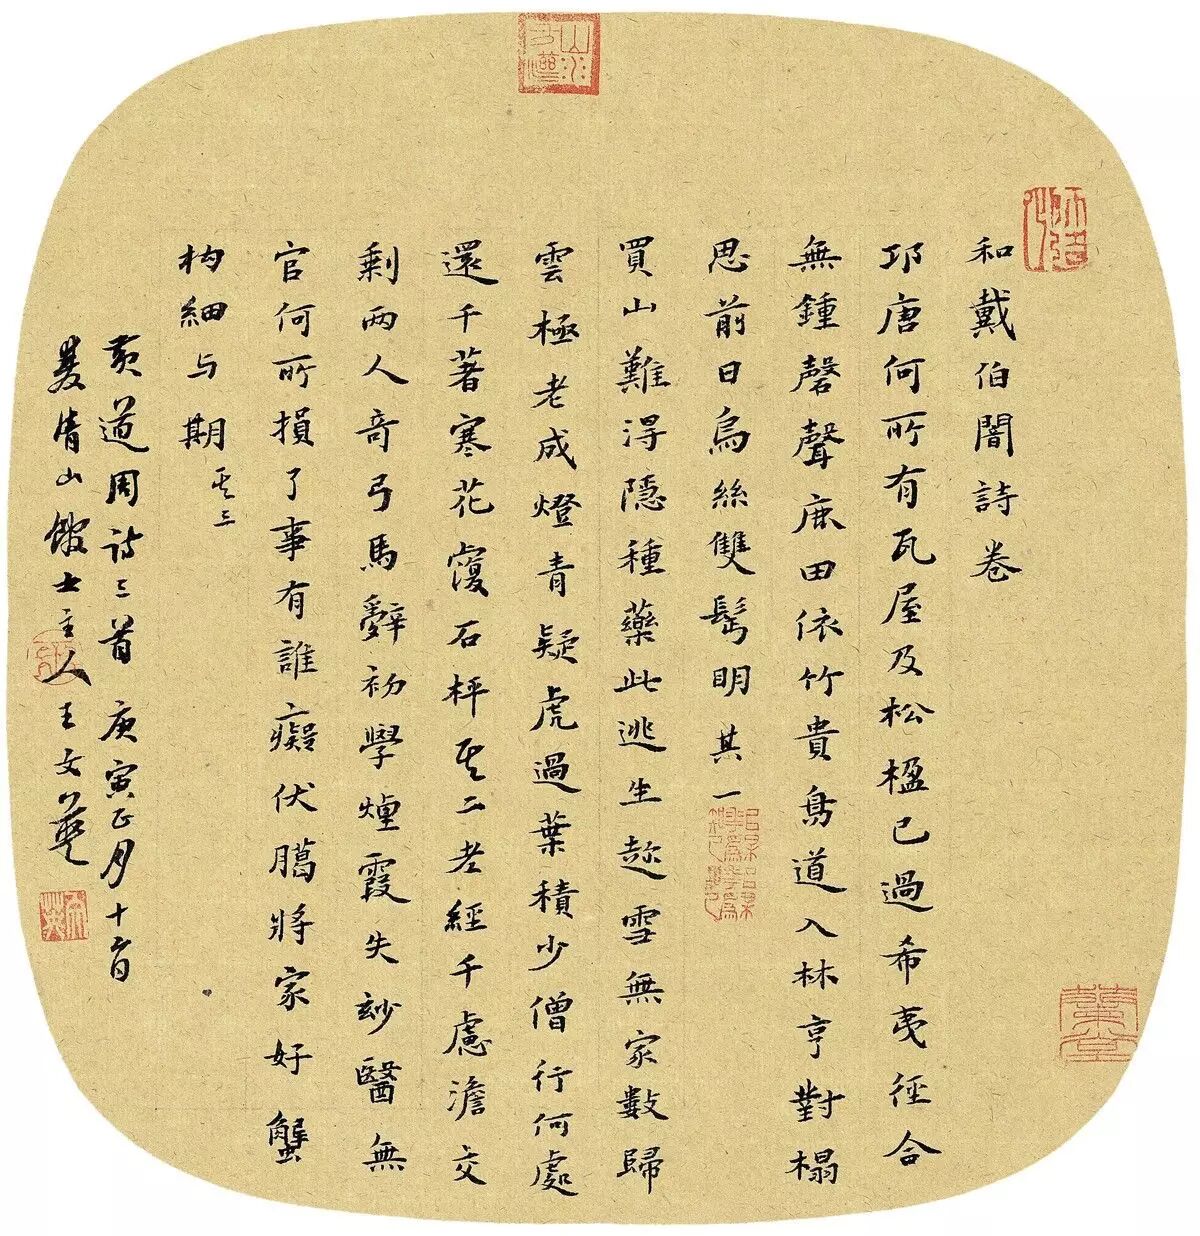 和戴伯闇詩卷
邛唐何所有瓦屋及松楹已過希夷徑合
無鍾磬聲鹿田依竹貴鳥道入林亨對榻
思前日烏絲雙髩明其一
買山難得隱種藥此逃生趂雪無家數歸
雲極老成燈青疑虎過葉積少僧行何處
還千著寒花覆石枰其二老經千慮澹交
剩兩人奇弓馬辭初學煙霞失玅醫無
官何所損了事有誰癡伏臈將家好蟹
构細与期其三
黃道周詩三首庚寅正月十六日
菱倩山館主人王文英